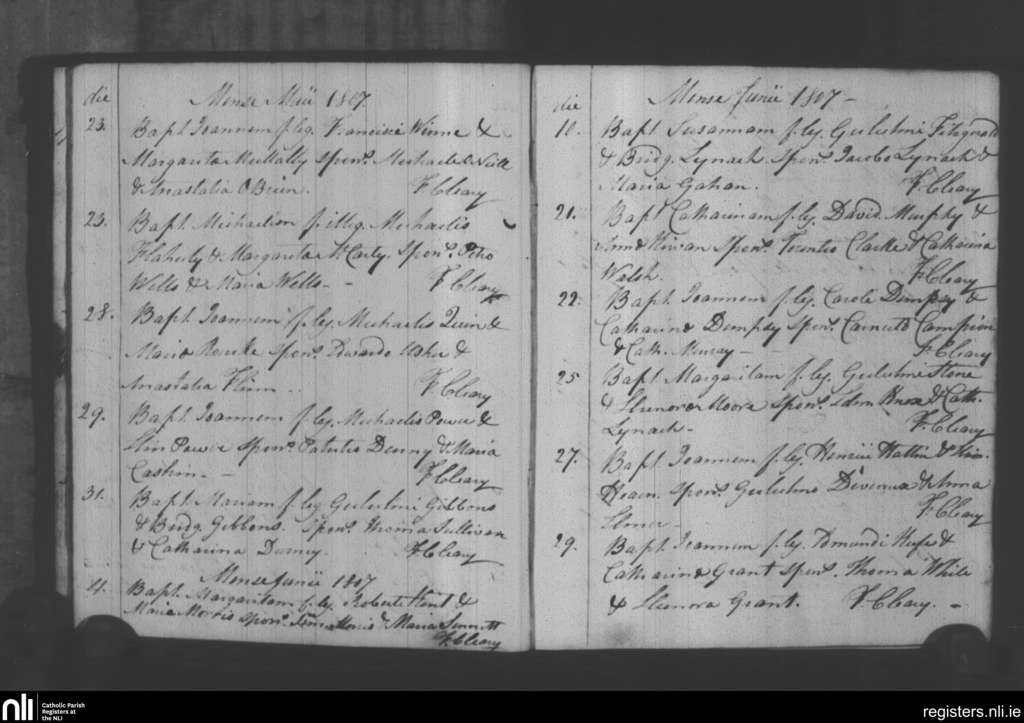 die Mense Maii 1807
23. Bapt. Joannem f. leg. Francisci Winne &
Margarita Mullally Spons. Michaele
& Anastatia O Brien. F. Cleary
23. Bapt. Michaelem f. illeg. Michaelis
Flaherty & Margarita McCarty. Spons. Petro
Wells & Maria Wells - F. Cleary
28. Bapt. Joannem f. leg. Michaelis Quin &
Maria Rourke Spons. Edwardo &
Anastatia Flinn - F Cleary
29. Bapt. Joannem f. leg. Michaelis Power &
Power Spons. Patritio Denny & Maria
Cashin. - F. Cleary
31. Bapt. Mariam f. leg Gulielmi Gibbons
& Bridg. Gibbons. Spons. Thoma Sullivan
& Catharina Denny. F. Cleary
Mense Junii 1807
4. Bapt. Margaritam f. leg. Roberti Kent &
Maria Morris Spons. Morris & Maria Sinnott
F. Cleary
die Mense Junii 1807 -
10. Bapt Susannam f. leg. Gulielmi Fitzgerald
& Bridg. Lynach Spons. Jacobo Lynach &
Maria Gahan. F. Cleary
21. Bapt Catharinam f. leg. David. Murphy &
Anna Kirwan Spons. Terentio Clarke & Catharina
Walsh. F. Cleary
22. Bapt. Joannem f. leg. Caroli Dempsy &
Catharina Dempsy Spons. Campion
& Cath. Murray - F. Cleary
25 Bapt. Margaritam f. leg. Gulielmi Stone
& Elenora Moore Spons. Edm. & Cath.
Lynach - F. Cleary
27. Bapt. Joannem f. leg. Henrici &
Spons. Gulielmo Devereux & Anna
F. Cleary
29. Bapt. Joannem f. leg. Edmundi &
Catharina Grant Spons. Thoma White
& Elenora Grant. F. Cleary. -
nli Catholic Parish
Registers at
the NLI
registers.nli.ie